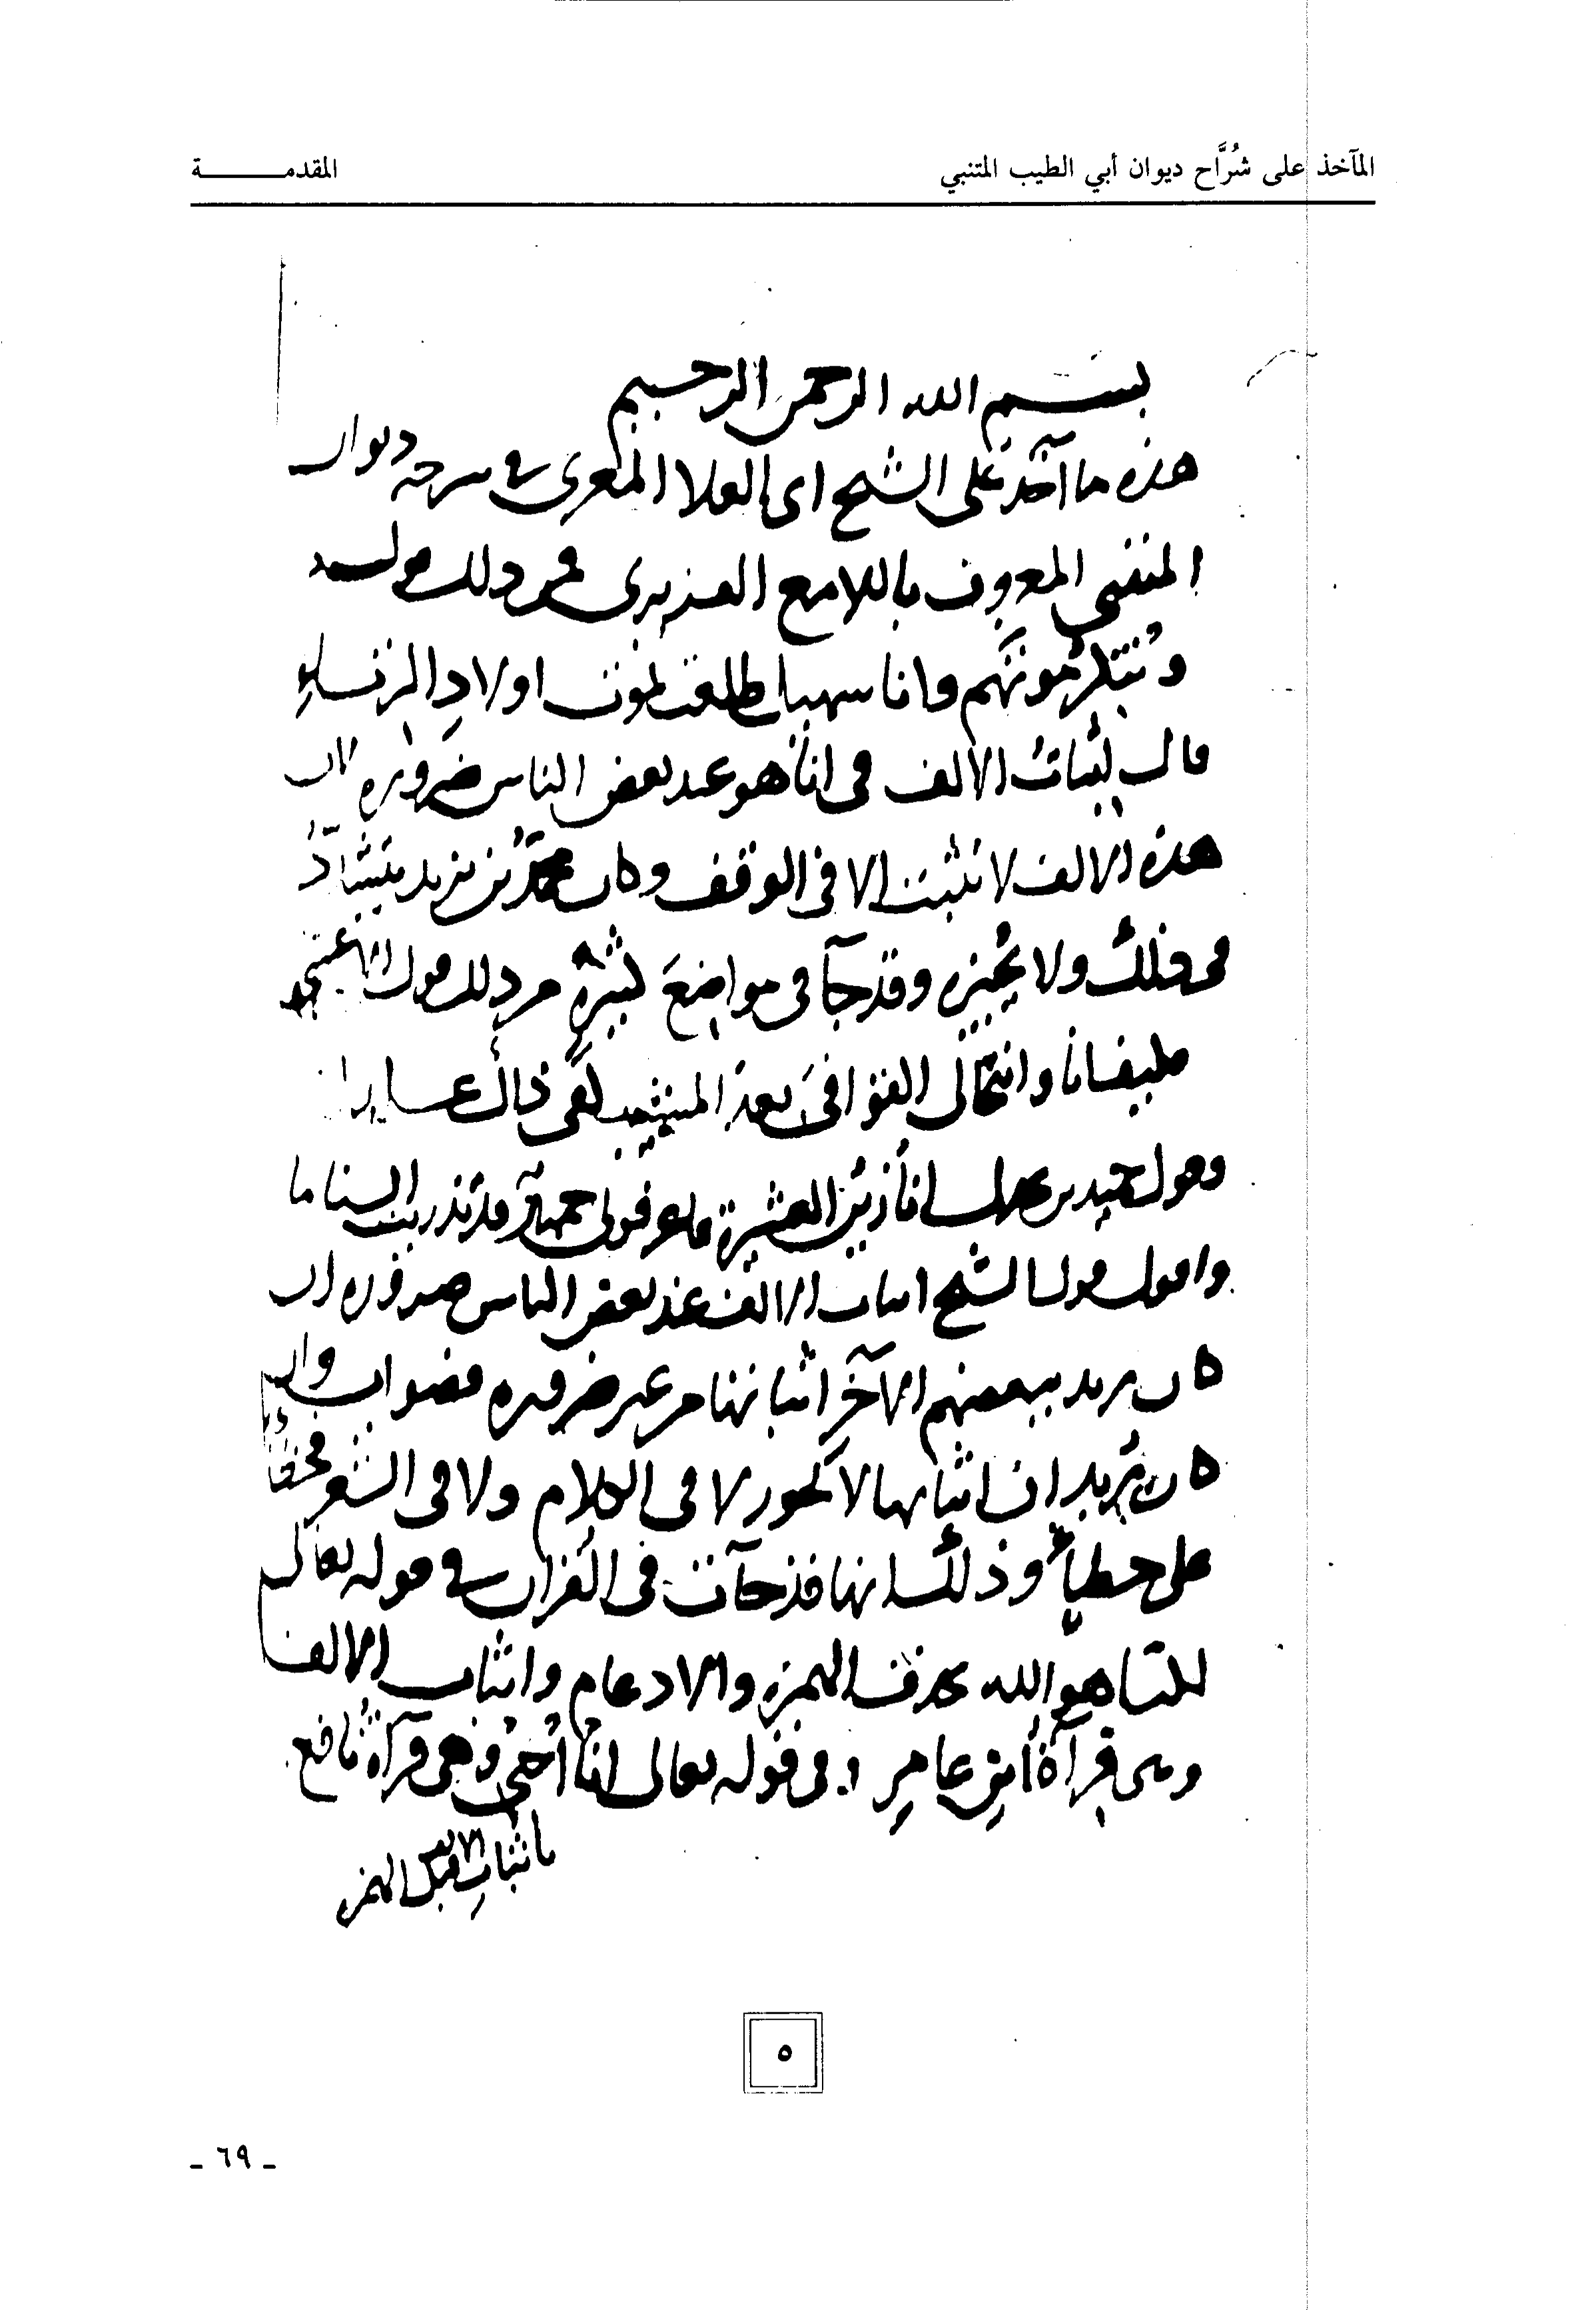 المآخذ على شُرَّاح ديوان أبي الطيب المتنبي
المقدمـــــــة
بسم الله الرحمن الرحيم
هذه مآخذ على الشيخ ابى العلا المعرى فى شرحه ديوان
المتنبى المعروف باللامع العزيزى فمن ذلك قوله
وتنكر موتهم وانا سهيل طلعت بموت اولاد الزناء
قال اثبات الالف فى انا هو عند بعض الناس ضرورة لان
هذه الالف لا تثبت الا فى الوقف وكان محمد بن يزيد يتشدد
فى ذلك ولا يجيزه وقد جآ فى مواضع كثيرة من ذلك قول الاعشى
فكيف انا وانتحالى القوافى بعد المشيب كفى ذاك عارا
وقول حميد بن بحدل انا زين العشيرة فاعرفونى حميدا قد تذريت السناما
واقول قول الشيخ اثبات الالف عند بعض الناس ضرورة ان
كان يريد ببعضهم الآخر اثباتها من غير ضرورة فصواب وان
كان يريد ان اثباتها لا يجوز لا فى الكلام ولا فى الشعر
على خطأ وذلك انها قد جآت فى القرآن فى قوله تعالى
لكنا هو الله بحذف الهمزة والادغام واثبات الالف
وهى قرآة ابن عامر وفى قوله تعالى انا احيى وهى قرآة نافع
باثبات الالف قبل الهمزه
٥
- ٦٩ -